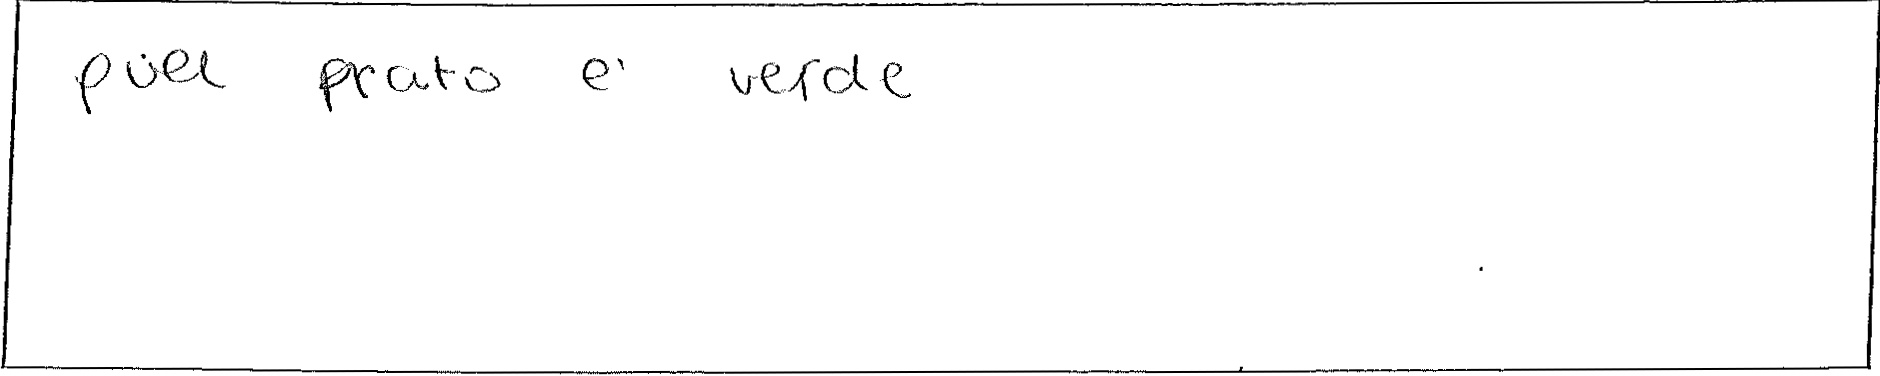 puel prato e' verde